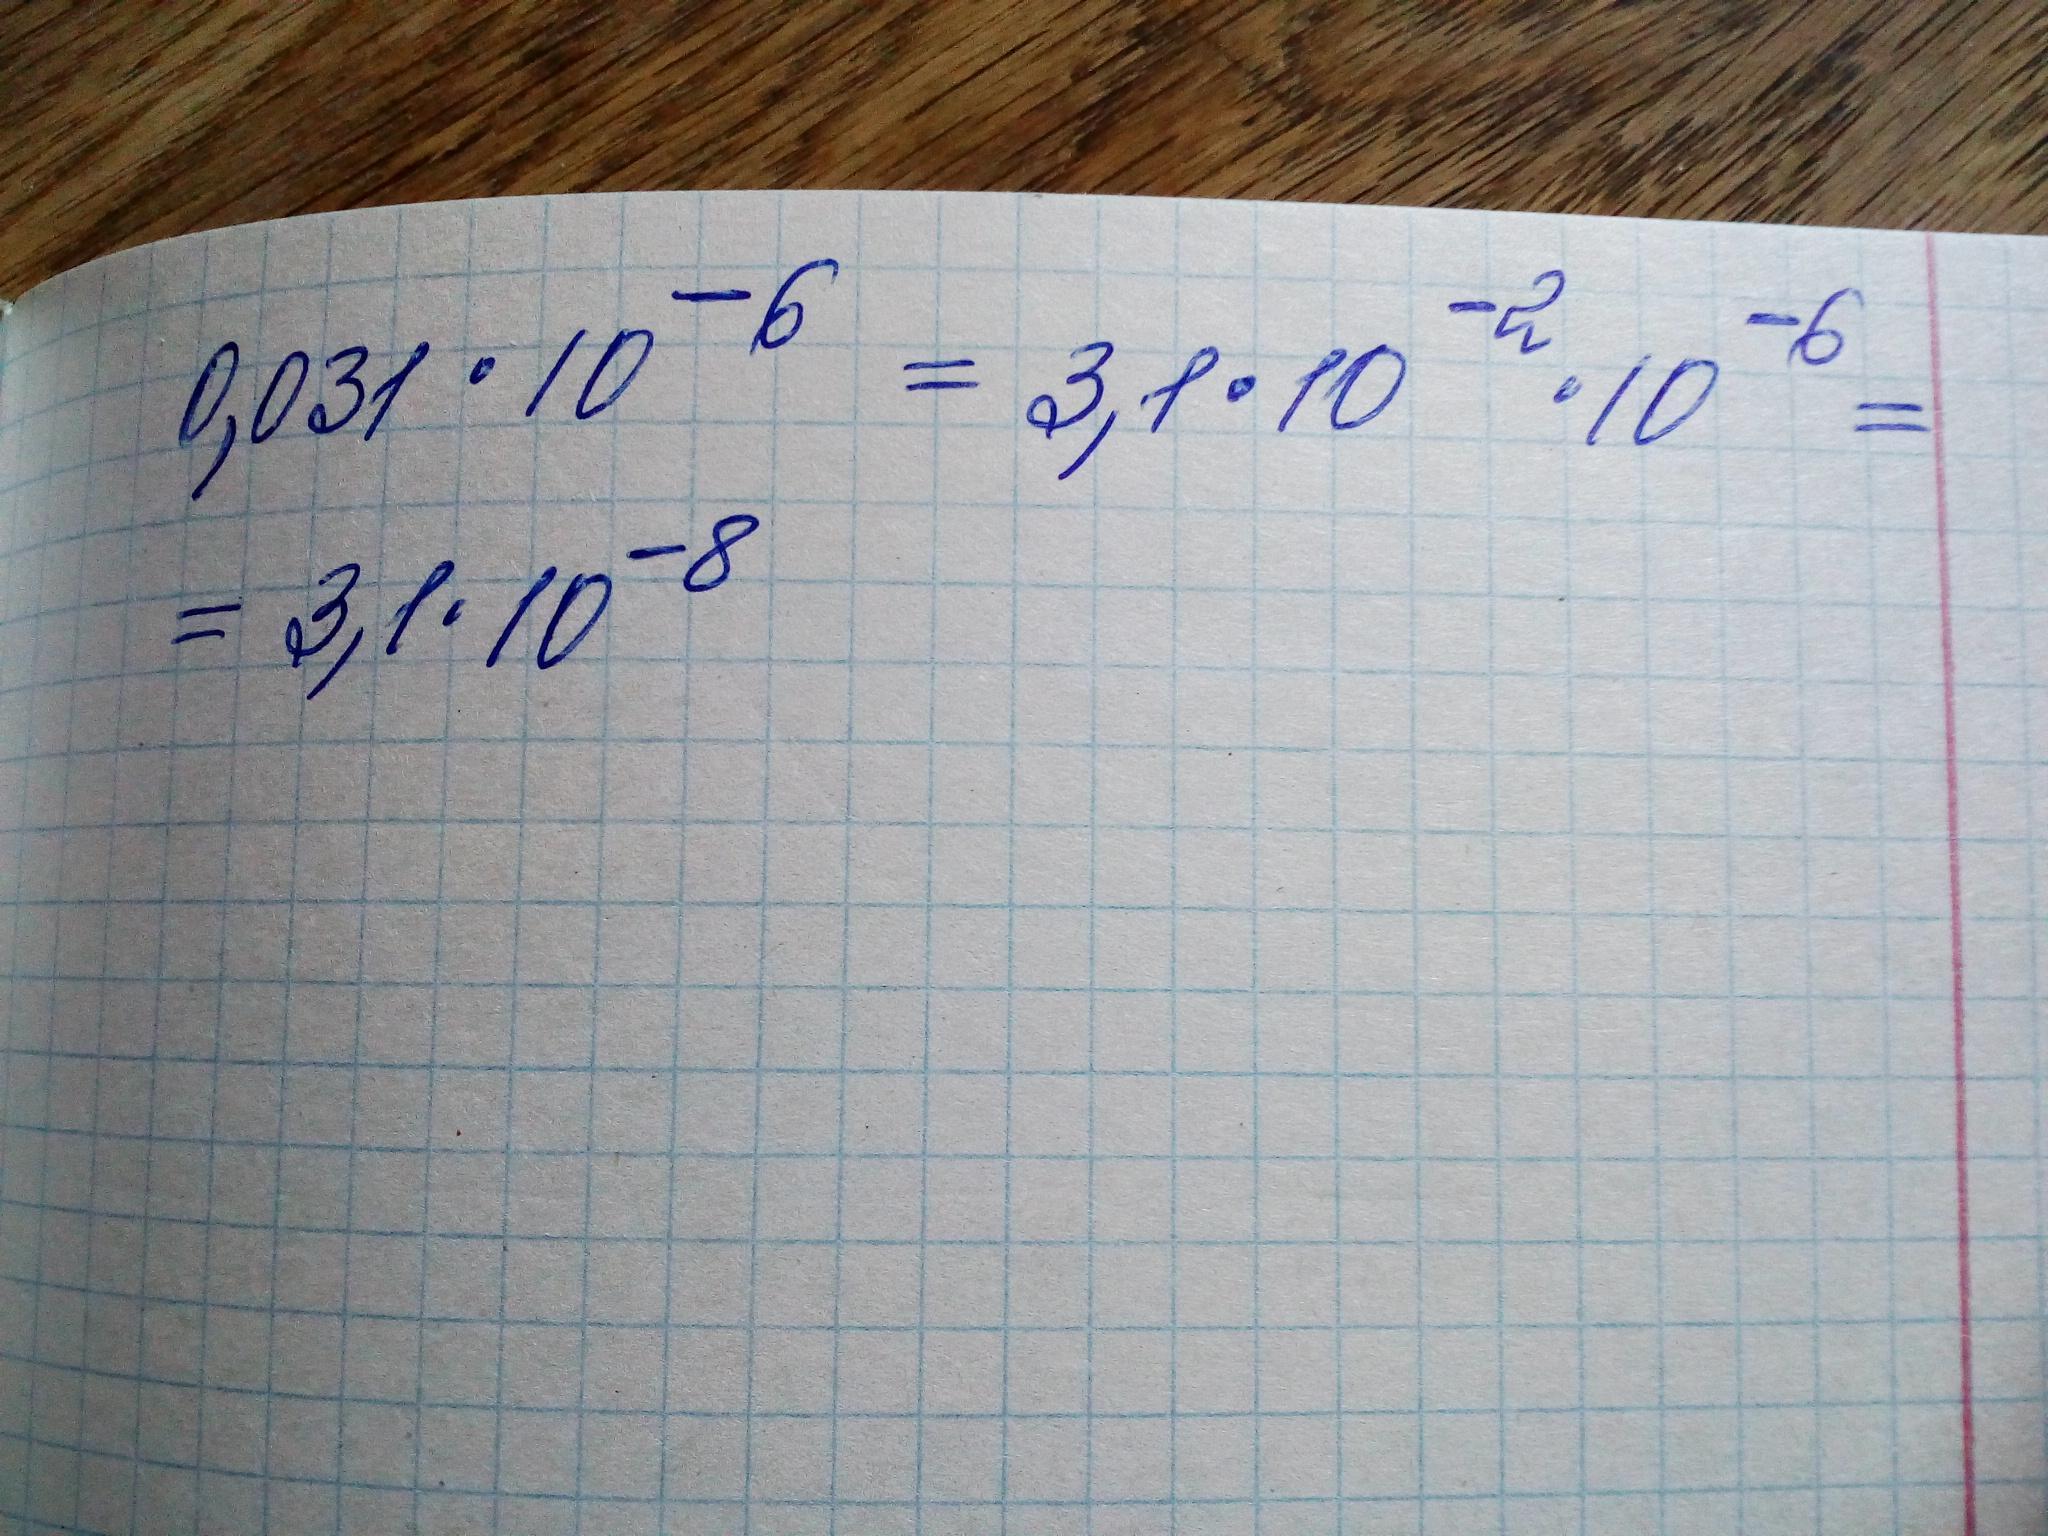 0,031 · 10⁻⁶ = 3,1 · 10⁻² · 10⁻⁶ =
= 3,1 · 10⁻⁸